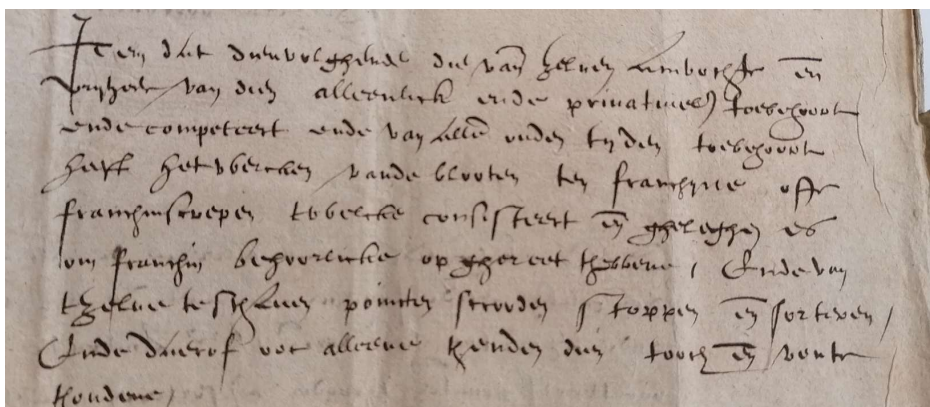 Item dat dienvolghende die vand zelven ambochte en
vryheit van dien alleenlick ende privativelick toebehoort
ende competeert ende van allen ouden tyden toebehoort
heeft het wercken vande blooten ten franchyne ofte
franchinscrepen twelcke consisteert en gheleghen es
om franchin behoorlicke op ghereet thebbene / Ende van
tzelve te schaven pointen scrooden stoppen en sorteren /
Ende daerof ooc alleene thenden dien tooch en vente
thoudene /